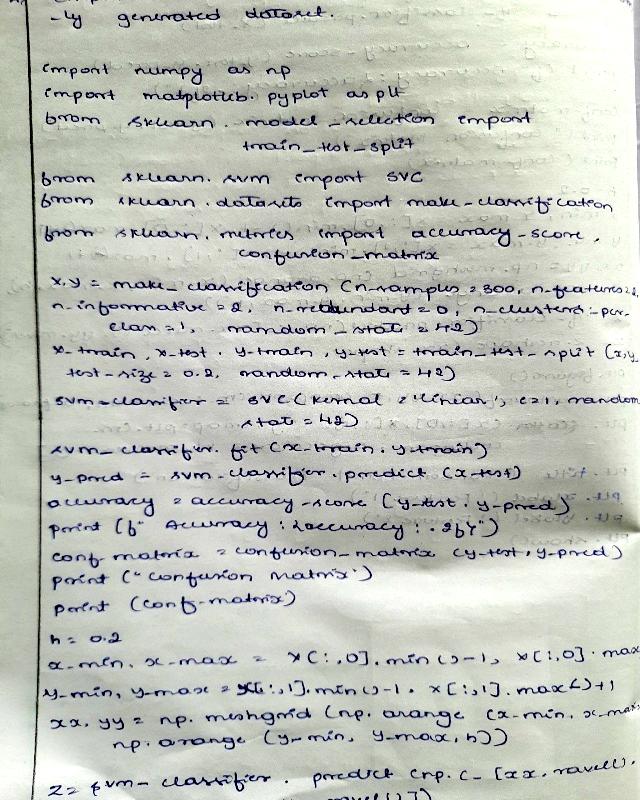 -ly generated dataset.
import numpy as np
import matplotlib.pyplot as plt
from sklearn.model_selection import
train_test_split
from sklearn.svm import SVC
from sklearn.datasets import make_classification
from sklearn.metrics import accuracy_score,
confusion_matrix
X,y = make_classification (n_samples=300, n_features=2,
n_informative=2, n_redundant=0, n_clusters_per_
class=1, random_state=42)
x_train, x_test, y_train, y_test = train_test_split (x,y,
test_size=0.2, random_state=42)
svm_classifier = SVC(kernal='linear', c=1, random
state=42)
svm_classifier.fit (x_train, y_train)
y_pred = svm_classifier.predict (x_test)
accuracy = accuracy_score (y_test, y_pred)
print (f" Accuracy: {accuracy:.2f}")
conf_matrix = confusion_matrix (y_test, y_pred)
print ("confusion Matrix")
print (conf_matrix)
h = 0.2
x_min, x_max = X[:,0].min()-1, X[:,0].max
y_min, y_max = X[:,1].min()-1, X[:,1].max()+1
xx, yy = np.meshgrid (np.arange (x_min, x_max,
np.arange (y_min, y_max, h))
Z = svm_classifier.predict (np.c_[xx.ravel(),